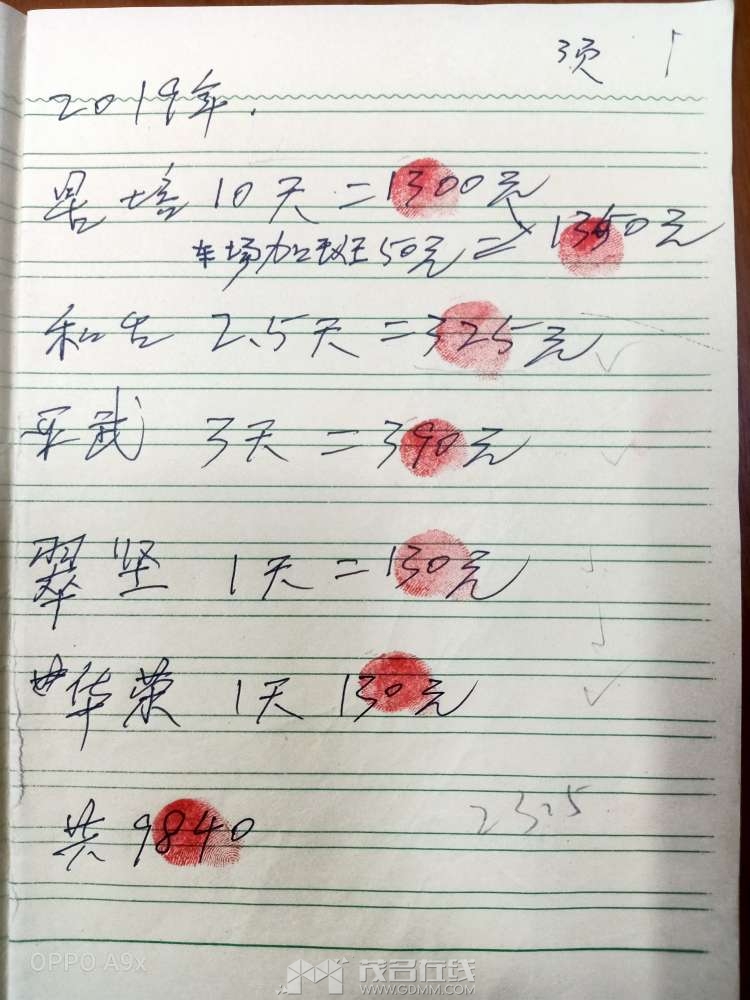 2019年.
培 10天=1300元
车场加班50元=1350元
和 2.5天=325元
武 3天=390元
翠坚 1天=130元
华荣 1天 130元
共9840
2325
OPPO A9x
茂名在线
WWW.GDMM.COM